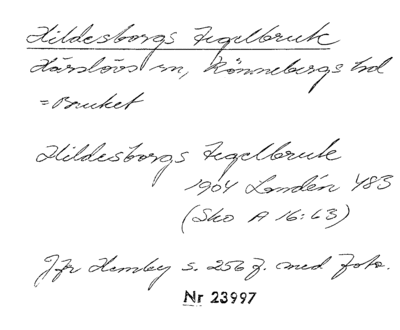 Hildesborgs Tegelbruk
Härslövs sn, Rönnebergs hd
= Bruket
Hildesborgs Tegelbruk
1904 Landén 483
(Sko A 16:63)
Jfr Hemby s. 256 f. med foto.
Nr 23997